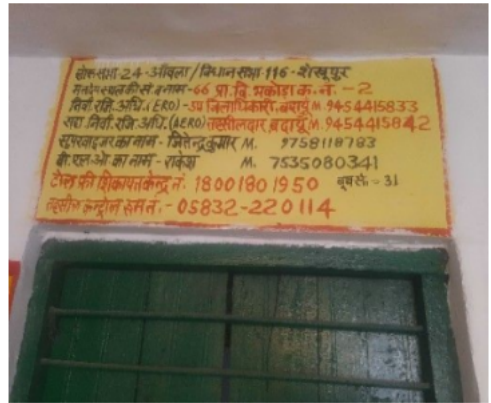 लोकसभा-24-आँवला/विधानसभा-116-शेखूपुर
मतदेय स्थल की सं व नाम-66 प्रा. वि. भकोडा क. नं. -2
निर्वा. रजि. अधि. (ERO)-उप जिलाधिकारी, बदायूं M. 9454415833
सहा. निर्वा. रजि. अधि. (AERO) तहसीलदार बदायूं M. 9454415842
सुपरवाइजर का नाम - जितेन्द्र कुमार M. 9758118783
बी. एल. ओ. का नाम - राकेश M. 7535080341
टोल फ्री शिकायत केन्द्र नं. 18001801950 बूथ सं.-31
तहसील कन्ट्रोल रूम नं.-05832-220114